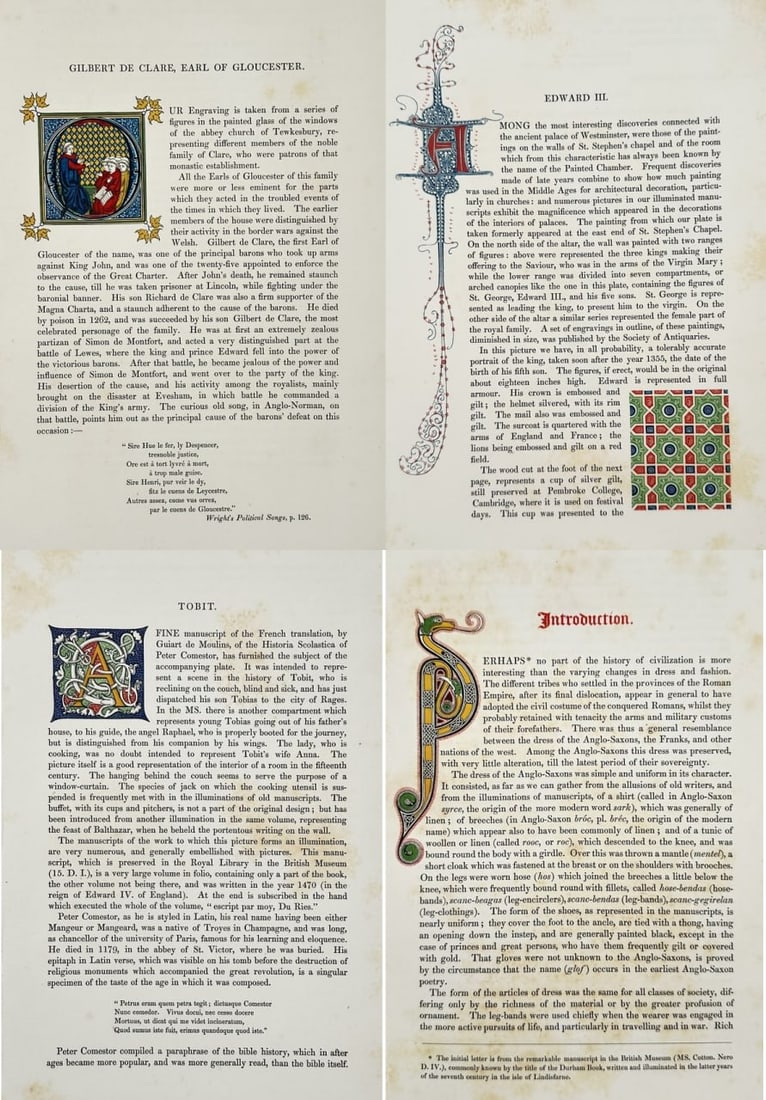 GILBERT DE CLARE, EARL OF GLOUCESTER.
UR Engraving is taken from a series of
figures in the painted glass of the windows
of the abbey church of Tewkesbury, re-
presenting different members of the noble
family of Clare, who were patrons of that
monastic establishment.
All the Earls of Gloucester of this family
were more or less eminent for the parts
which they acted in the troubled events of
the times in which they lived. The earlier
members of the house were distinguished by
their activity in the border wars against the
Welsh. Gilbert de Clare, the first Earl of
Gloucester of the name, was one of the principal barons who took up arms
against King John, and was one of the twenty-five appointed to enforce the
observance of the Great Charter. After John's death, he remained staunch
to the cause, till he was taken prisoner at Lincoln, while fighting under the
baronial banner. His son Richard de Clare was also a firm supporter of the
Magna Charta, and a staunch adherent to the cause of the barons. He died
by poison in 1262, and was succeeded by his son Gilbert de Clare, the most
celebrated personage of the family. He was at first an extremely zealous
partizan of Simon de Montfort, and acted a very distinguished part at the
battle of Lewes, where the king and prince Edward fell into the power of
the victorious barons. After that battle, he became jealous of the power and
influence of Simon de Montfort, and went over to the party of the king.
His desertion of the cause, and his activity among the royalists, mainly
brought on the disaster at Evesham, in which battle he commanded a
division of the King's army. The curious old song, in Anglo-Norman, on
that battle, points him out as the principal cause of the barons' defeat on this
occasion :—
" Sire Hue le fer, ly Despencer,
tresnoble justice,
Ore est á tort lyvré á mort,
á trop male guise.
Sire Henri, pur veir le dy,
fitz le cuens de Leycestre,
Autres assez, come vus orrez,
par le cuens de Gloucestre."
Wright's Political Songs, p. 126.
EDWARD III.
A
MONG the most interesting discoveries connected with
the ancient palace of Westminster, were those of the paint-
ings on the walls of St. Stephen's chapel and of the room
which from this characteristic has always been known by
the name of the Painted Chamber. Frequent discoveries
made of late years combine to show how much painting
was used in the Middle Ages for architectural decoration, particu-
larly in churches : and numerous pictures in our illuminated manu-
scripts exhibit the magnificence which appeared in the decorations
of the interiors of palaces. The painting from which our plate is
taken formerly appeared at the east end of St. Stephen's Chapel.
On the north side of the altar, the wall was painted with two ranges
of figures : above were represented the three kings making their
offering to the Saviour, who was in the arms of the Virgin Mary ;
while the lower range was divided into seven compartments, or
arched canopies like the one in this plate, containing the figures of
St. George, Edward III., and his five sons. St. George is repre-
sented as leading the king, to present him to the virgin. On the
other side of the altar a similar series represented the female part of
the royal family. A set of engravings in outline, of these paintings,
diminished in size, was published by the Society of Antiquaries.
In this picture we have, in all probability, a tolerably accurate
portrait of the king, taken soon after the year 1355, the date of the
birth of his fifth son. The figures, if erect, would be in the original
about eighteen inches high. Edward is represented in full
armour. His crown is embossed and
gilt ; the helmet silvered, with its rim
gilt. The mail also was embossed and
gilt. The surcoat is quartered with the
arms of England and France ; the
lions being embossed and gilt on a red
field.
The wood cut at the foot of the next
page, represents a cup of silver gilt,
still preserved at Pembroke College,
Cambridge, where it is used on festival
days. This cup was presented to the
TOBIT.
A
FINE manuscript of the French translation, by
Guiart de Moulins, of the Historia Scolastica of
Peter Comestor, has furnished the subject of the
accompanying plate. It was intended to repre-
sent a scene in the history of Tobit, who is
reclining on the couch, blind and sick, and has just
dispatched his son Tobias to the city of Rages.
In the MS. there is another compartment which
represents young Tobias going out of his father's
house, to his guide, the angel Raphael, who is properly booted for the journey,
but is distinguished from his companion by his wings. The lady, who is
cooking, was no doubt intended to represent Tobit's wife Anna. The
picture itself is a good representation of the interior of a room in the fifteenth
century. The hanging behind the couch seems to serve the purpose of a
window-curtain. The species of jack on which the cooking utensil is sus-
pended is frequently met with in the illuminations of old manuscripts. The
buffet, with its cups and pitchers, is not a part of the original design ; but has
been introduced from another illumination in the same volume, representing
the feast of Balthazar, when he beheld the portentous writing on the wall.
The manuscripts of the work to which this picture forms an illumination,
are very numerous, and generally embellished with pictures. This manu-
script, which is preserved in the Royal Library in the British Museum
(15. D. I.), is a very large volume in folio, containing only a part of the book,
the other volume not being there, and was written in the year 1470 (in the
reign of Edward IV. of England). At the end is subscribed in the hand
which executed the whole of the volume, " escript par moy, Du Ries."
Peter Comestor, as he is styled in Latin, his real name having been either
Mangeur or Mangeard, was a native of Troyes in Champagne, and was long,
as chancellor of the university of Paris, famous for his learning and eloquence.
He died in 1179, in the abbey of St. Victor, where he was buried. His
epitaph in Latin verse, which was visible on his tomb before the destruction of
religious monuments which accompanied the great revolution, is a singular
specimen of the taste of the age in which it was composed.
" Petrus eram quem petra tegit ; dictusque Comestor
Nunc comedor. Vivus docui, nec cesso docere
Mortuus, ut dicat qui me videt incineratum,
'Quod sumus iste fuit, erimus quandoque quod iste.'"
Peter Comestor compiled a paraphrase of the bible history, which in after
ages became more popular, and was more generally read, than the bible itself.
Introduction.
P
ERHAPS* no part of the history of civilization is more
interesting than the varying changes in dress and fashion.
The different tribes who settled in the provinces of the Roman
Empire, after its final dislocation, appear in general to have
adopted the civil costume of the conquered Romans, whilst they
probably retained with tenacity the arms and military customs
of their forefathers. There was thus a general resemblance
between the dress of the Anglo-Saxons, the Franks, and other
nations of the west. Among the Anglo-Saxons this dress was preserved,
with very little alteration, till the latest period of their sovereignty.
The dress of the Anglo-Saxons was simple and uniform in its character.
It consisted, as far as we can gather from the allusions of old writers, and
from the illuminations of manuscripts, of a shirt (called in Anglo-Saxon
syrce, the origin of the more modern word sark), which was generally of
linen ; of breeches (in Anglo-Saxon bróc, pl. bréc, the origin of the modern
name) which appear also to have been commonly of linen ; and of a tunic of
woollen or linen (called rooc, or roc), which descended to the knee, and was
bound round the body with a girdle. Over this was thrown a mantle (mentel), a
short cloak which was fastened at the breast or on the shoulders with brooches.
On the legs were worn hose (hos) which joined the breeches a little below the
knee, which were frequently bound round with fillets, called hose-bendas (hose-
bands), scanc-beagas (leg-encirclers), scanc-bendas (leg-bands), scanc-gegirelan
(leg-clothings). The form of the shoes, as represented in the manuscripts, is
nearly uniform ; they cover the foot to the ancle, are tied with a thong, having
an opening down the instep, and are generally painted black, except in the
case of princes and great persons, who have them frequently gilt or covered
with gold. That gloves were not unknown to the Anglo-Saxons, is proved
by the circumstance that the name (glof) occurs in the earliest Anglo-Saxon
poetry.
The form of the articles of dress was the same for all classes of society, dif-
fering only by the richness of the material or by the greater profusion of
ornament. The leg-bands were used chiefly when the wearer was engaged in
the more active pursuits of life, and particularly in travelling and in war. Rich
* The initial letter is from the remarkable manuscript in the British Museum (MS. Cotton. Nero
D. IV.), commonly known by the title of the Durham Book, written and illuminated in the latter years
of the seventh century in the isle of Lindisfarne.